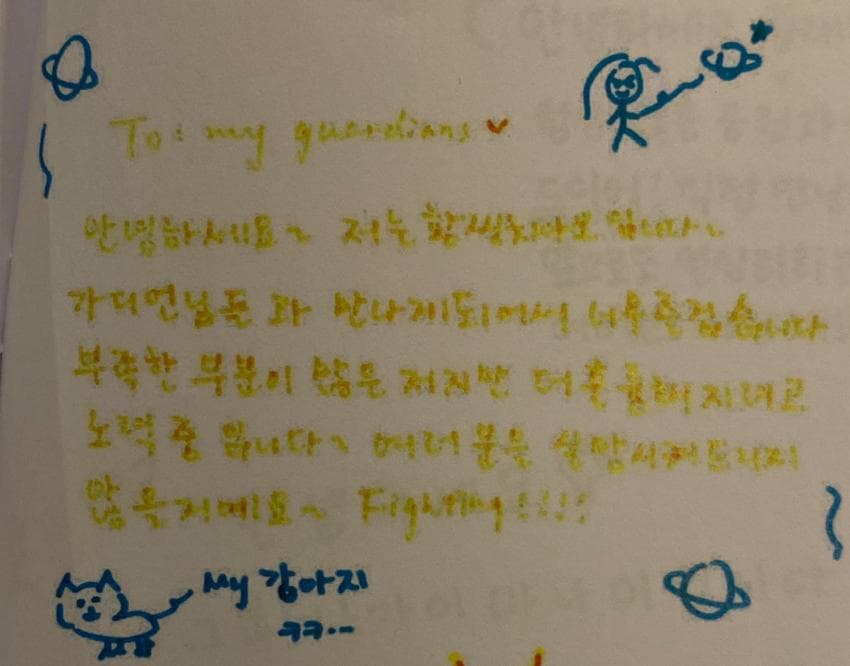 To: my guardians
안녕하세요~ 저는 입니다~
가디언님들과 만나게되어서 너무즐겁습니다
부족한 부분이 많은 저지만 더 훌륭해지려고
노력중 입니다~ 여러분을 실망시켜드리지
않을거예요~ Fighting!!!!
My 강아지
ㅋㅋ..